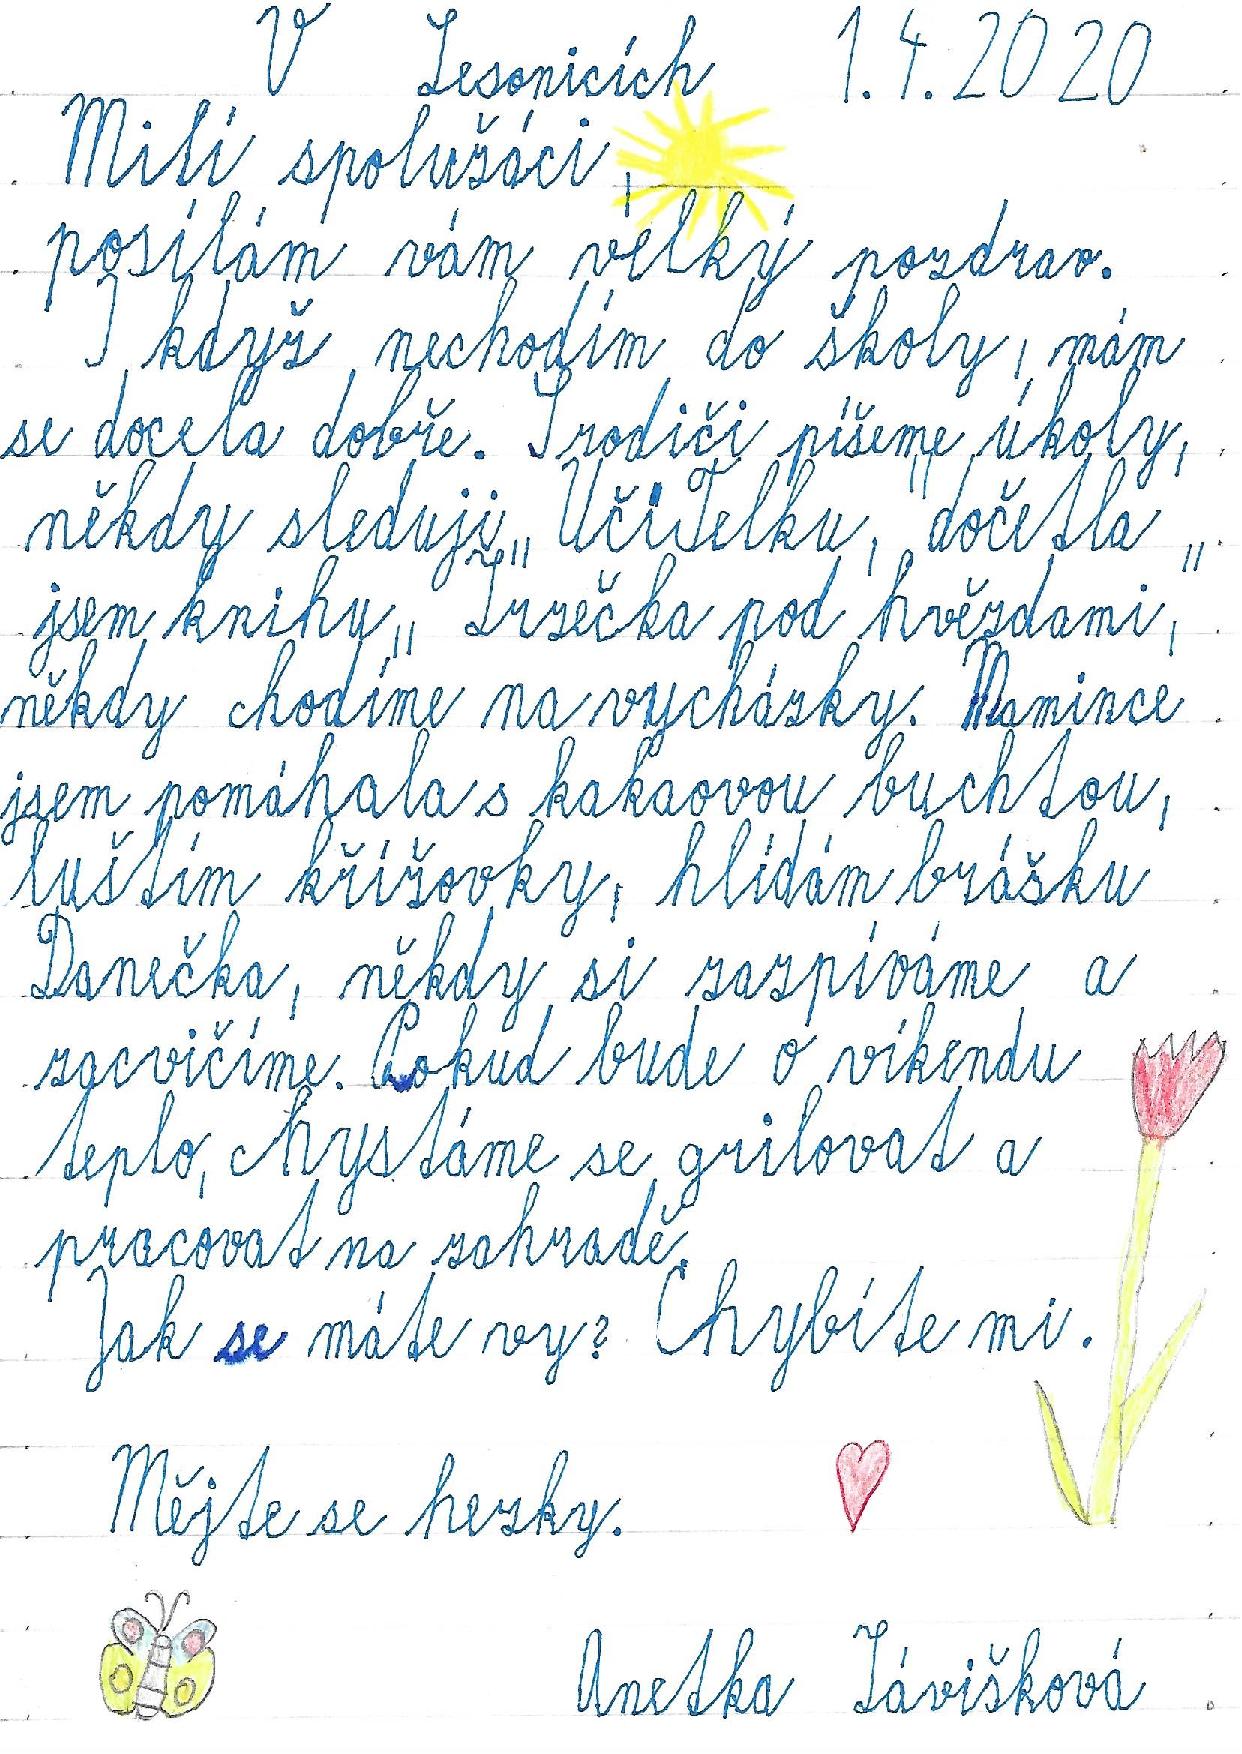 V Lesonicích 1.4.2020
Milí spolužáci,
posílám vám velký pozdrav.
I když nechodím do školy, mám
se docela dobře. S rodiči píšeme úkoly,
někdy sleduji „UčíTelku," dočetla
jsem knihu „Zrzečka pod hvězdami,"
někdy chodíme na vycházky. Mamince
jsem pomáhala s kakaovou buchtou,
luštím křížovky, hlídám brášku
Danečka, někdy si zazpíváme a
zacvičíme. Pokud bude o víkendu
teplo, chystáme se grilovat a
pracovat na zahradě.
Jak se máte vy? Chybíte mi.
Mějte se hezky.
Anetka Závišková